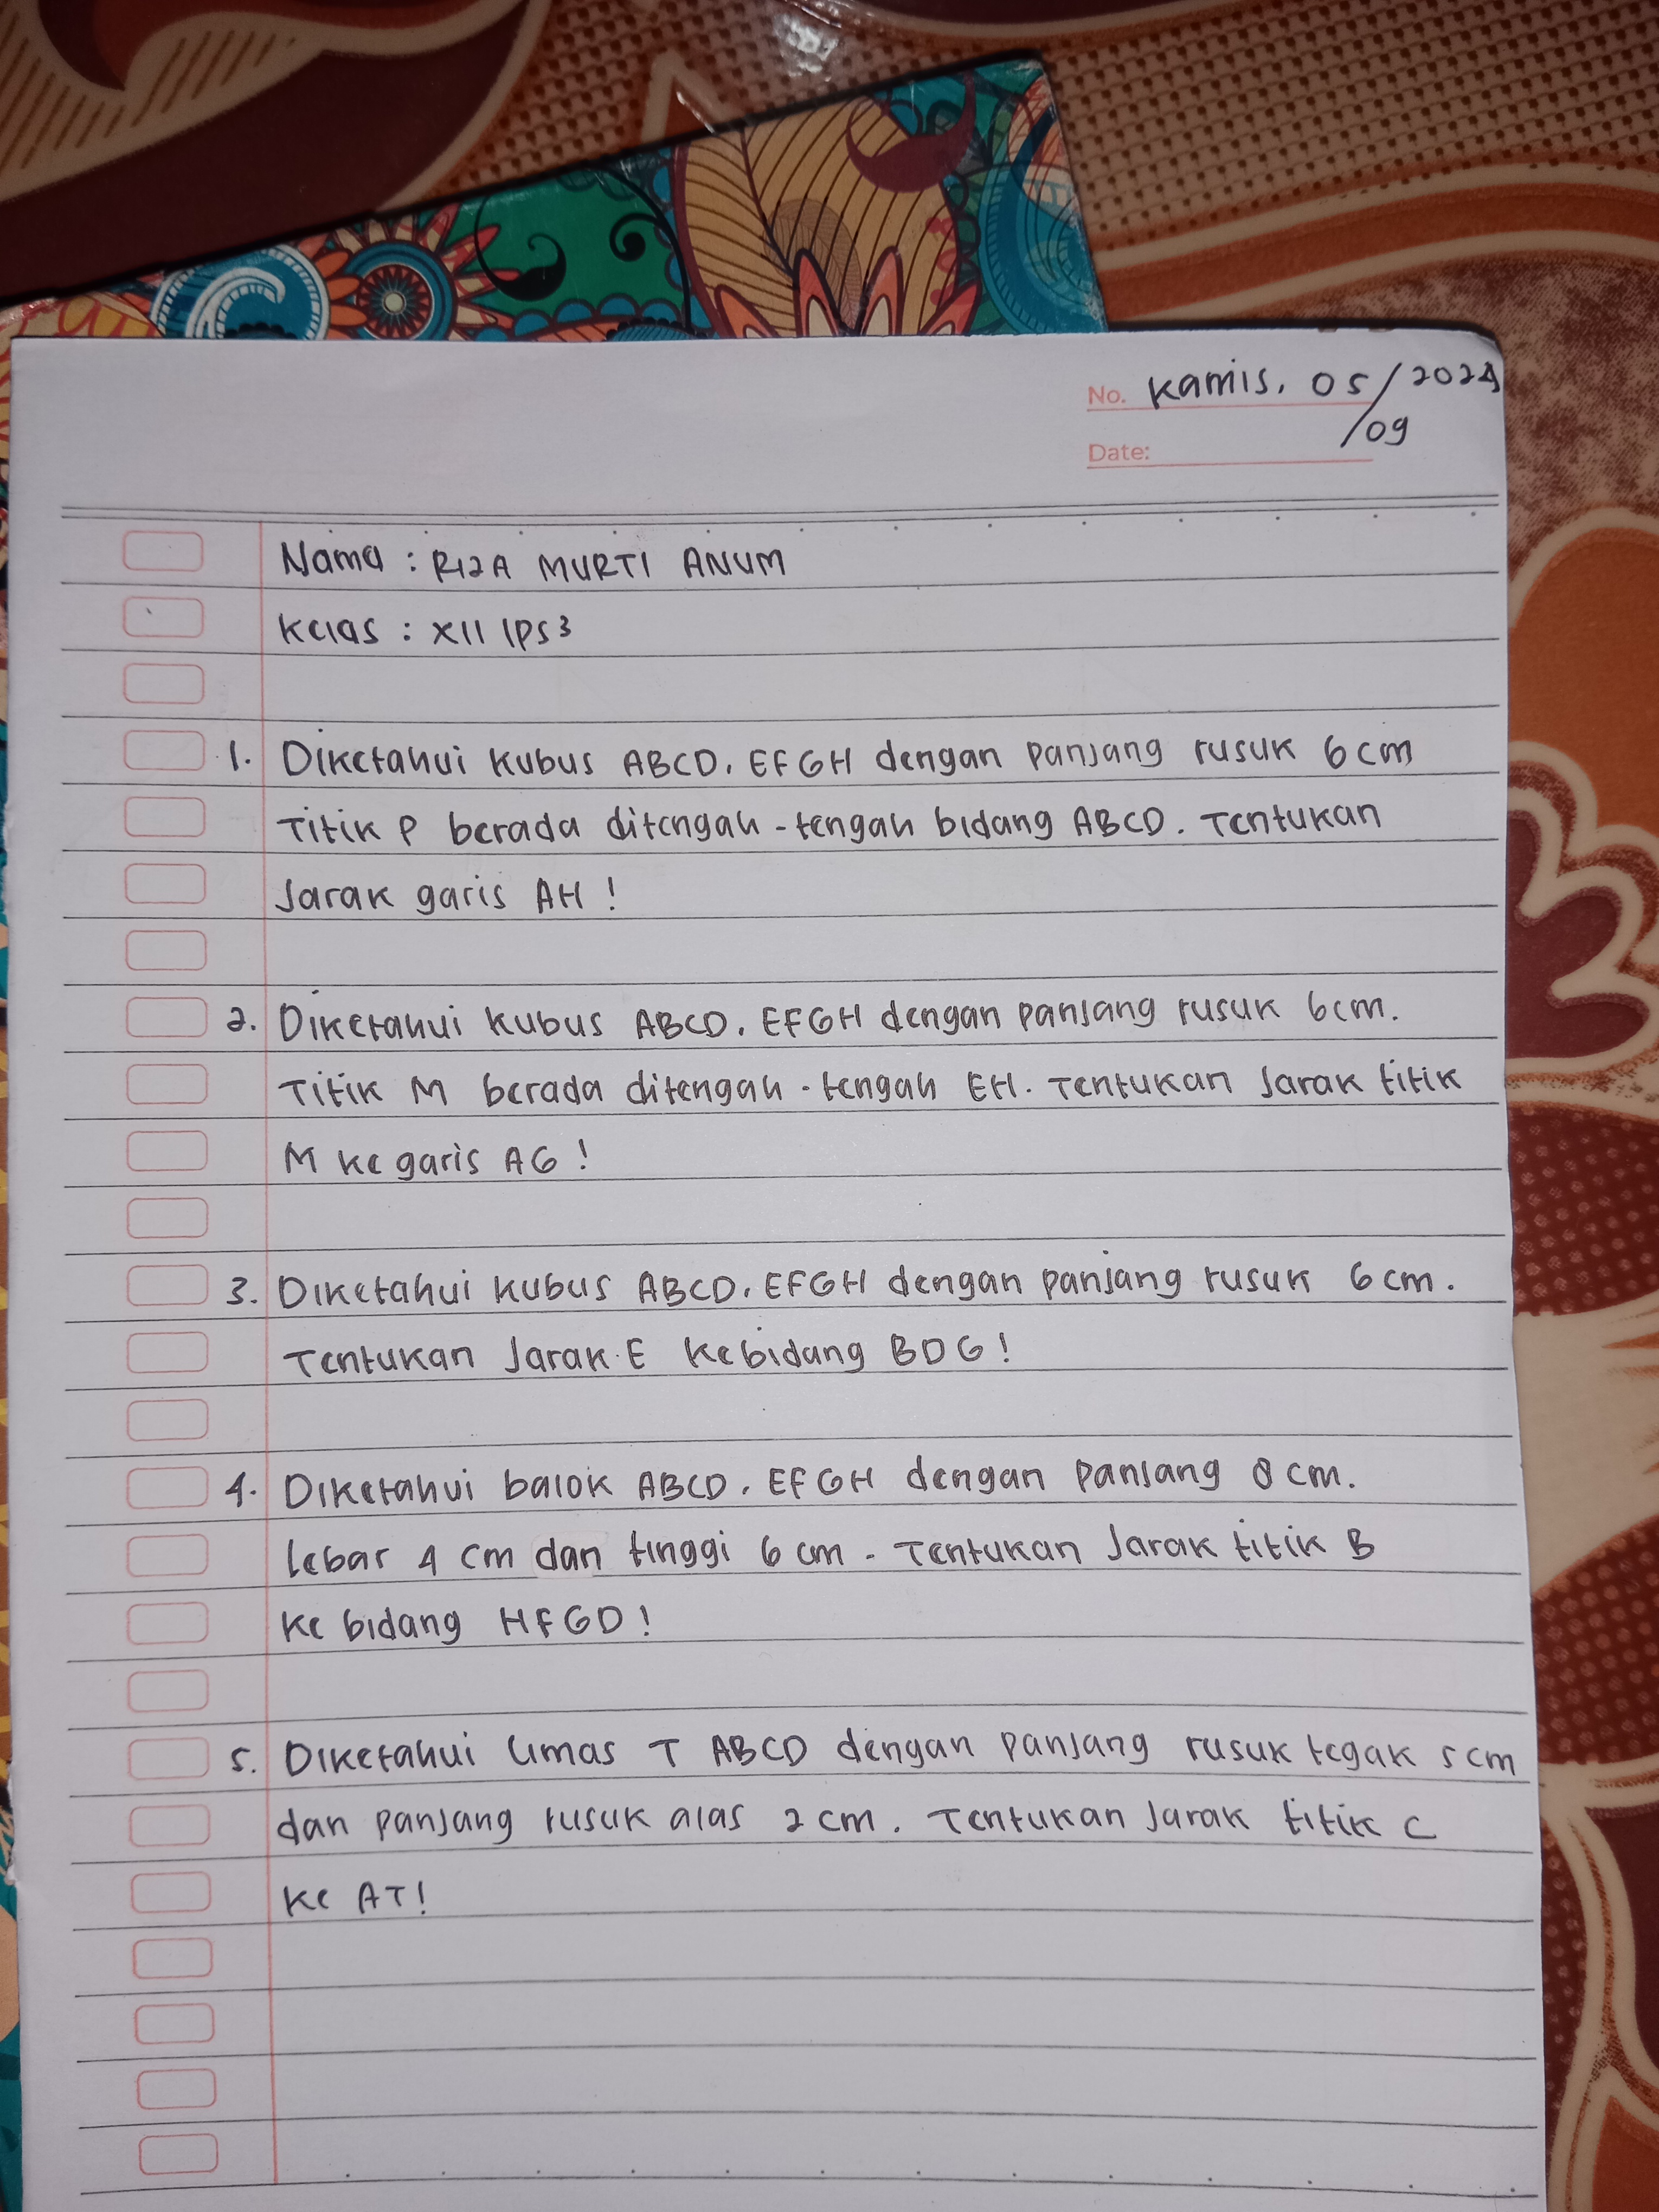 No. Kamis, 05/09 2024
Date:
Nama : RIZA MURTI ANUM
Kelas : XII IPS 3
1. Diketahui kubus ABCD.EFGH dengan panjang rusuk 6 cm
Titik P berada ditengah-tengah bidang ABCD. Tentukan
Jarak garis AH !
2. Diketahui kubus ABCD.EFGH dengan panjang rusuk 6cm.
Titik M berada ditengah-tengah EH. Tentukan Jarak titik
M ke garis AG !
3. Diketahui kubus ABCD.EFGH dengan panjang rusuk 6 cm.
Tentukan Jarak E kebidang BDG !
4. Diketahui balok ABCD.EFGH dengan panjang 8 cm.
lebar 4 cm dan tinggi 6 cm. Tentukan Jarak titik B
ke bidang HFGD !
5. Diketahui limas T ABCD dengan panjang rusuk tegak 5 cm
dan panjang rusuk alas 2 cm. Tentukan Jarak titik C
ke AT!